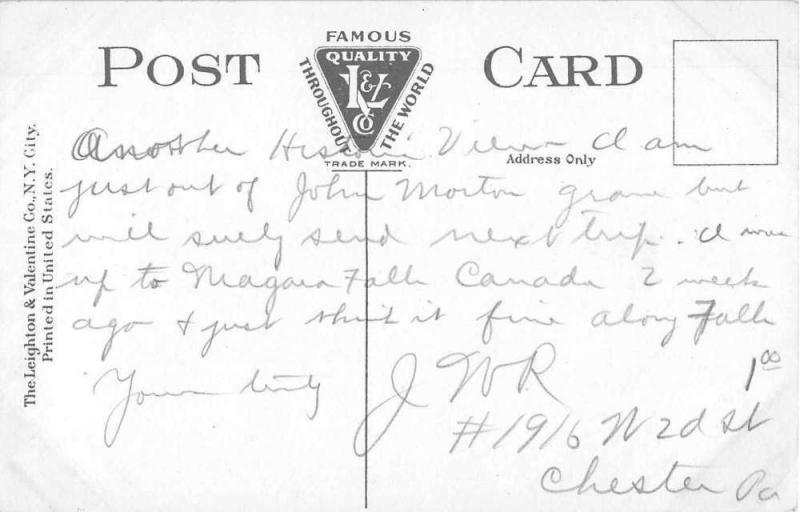 POST CARD
FAMOUS
QUALITY
THROUGHOUT THE WORLD
L & V Co
TRADE MARK.
Address Only
The Leighton & Valentine Co., N.Y. City.
Printed in United States.
Another Historic View I am
just out of John Morton grave but
will suely send next trip. I was
up to Niagara Falls Canada 2 week
ago & just think it fine along Falls
Yours truly J W R
1 00
#1916 W 2d St
Chester Pa